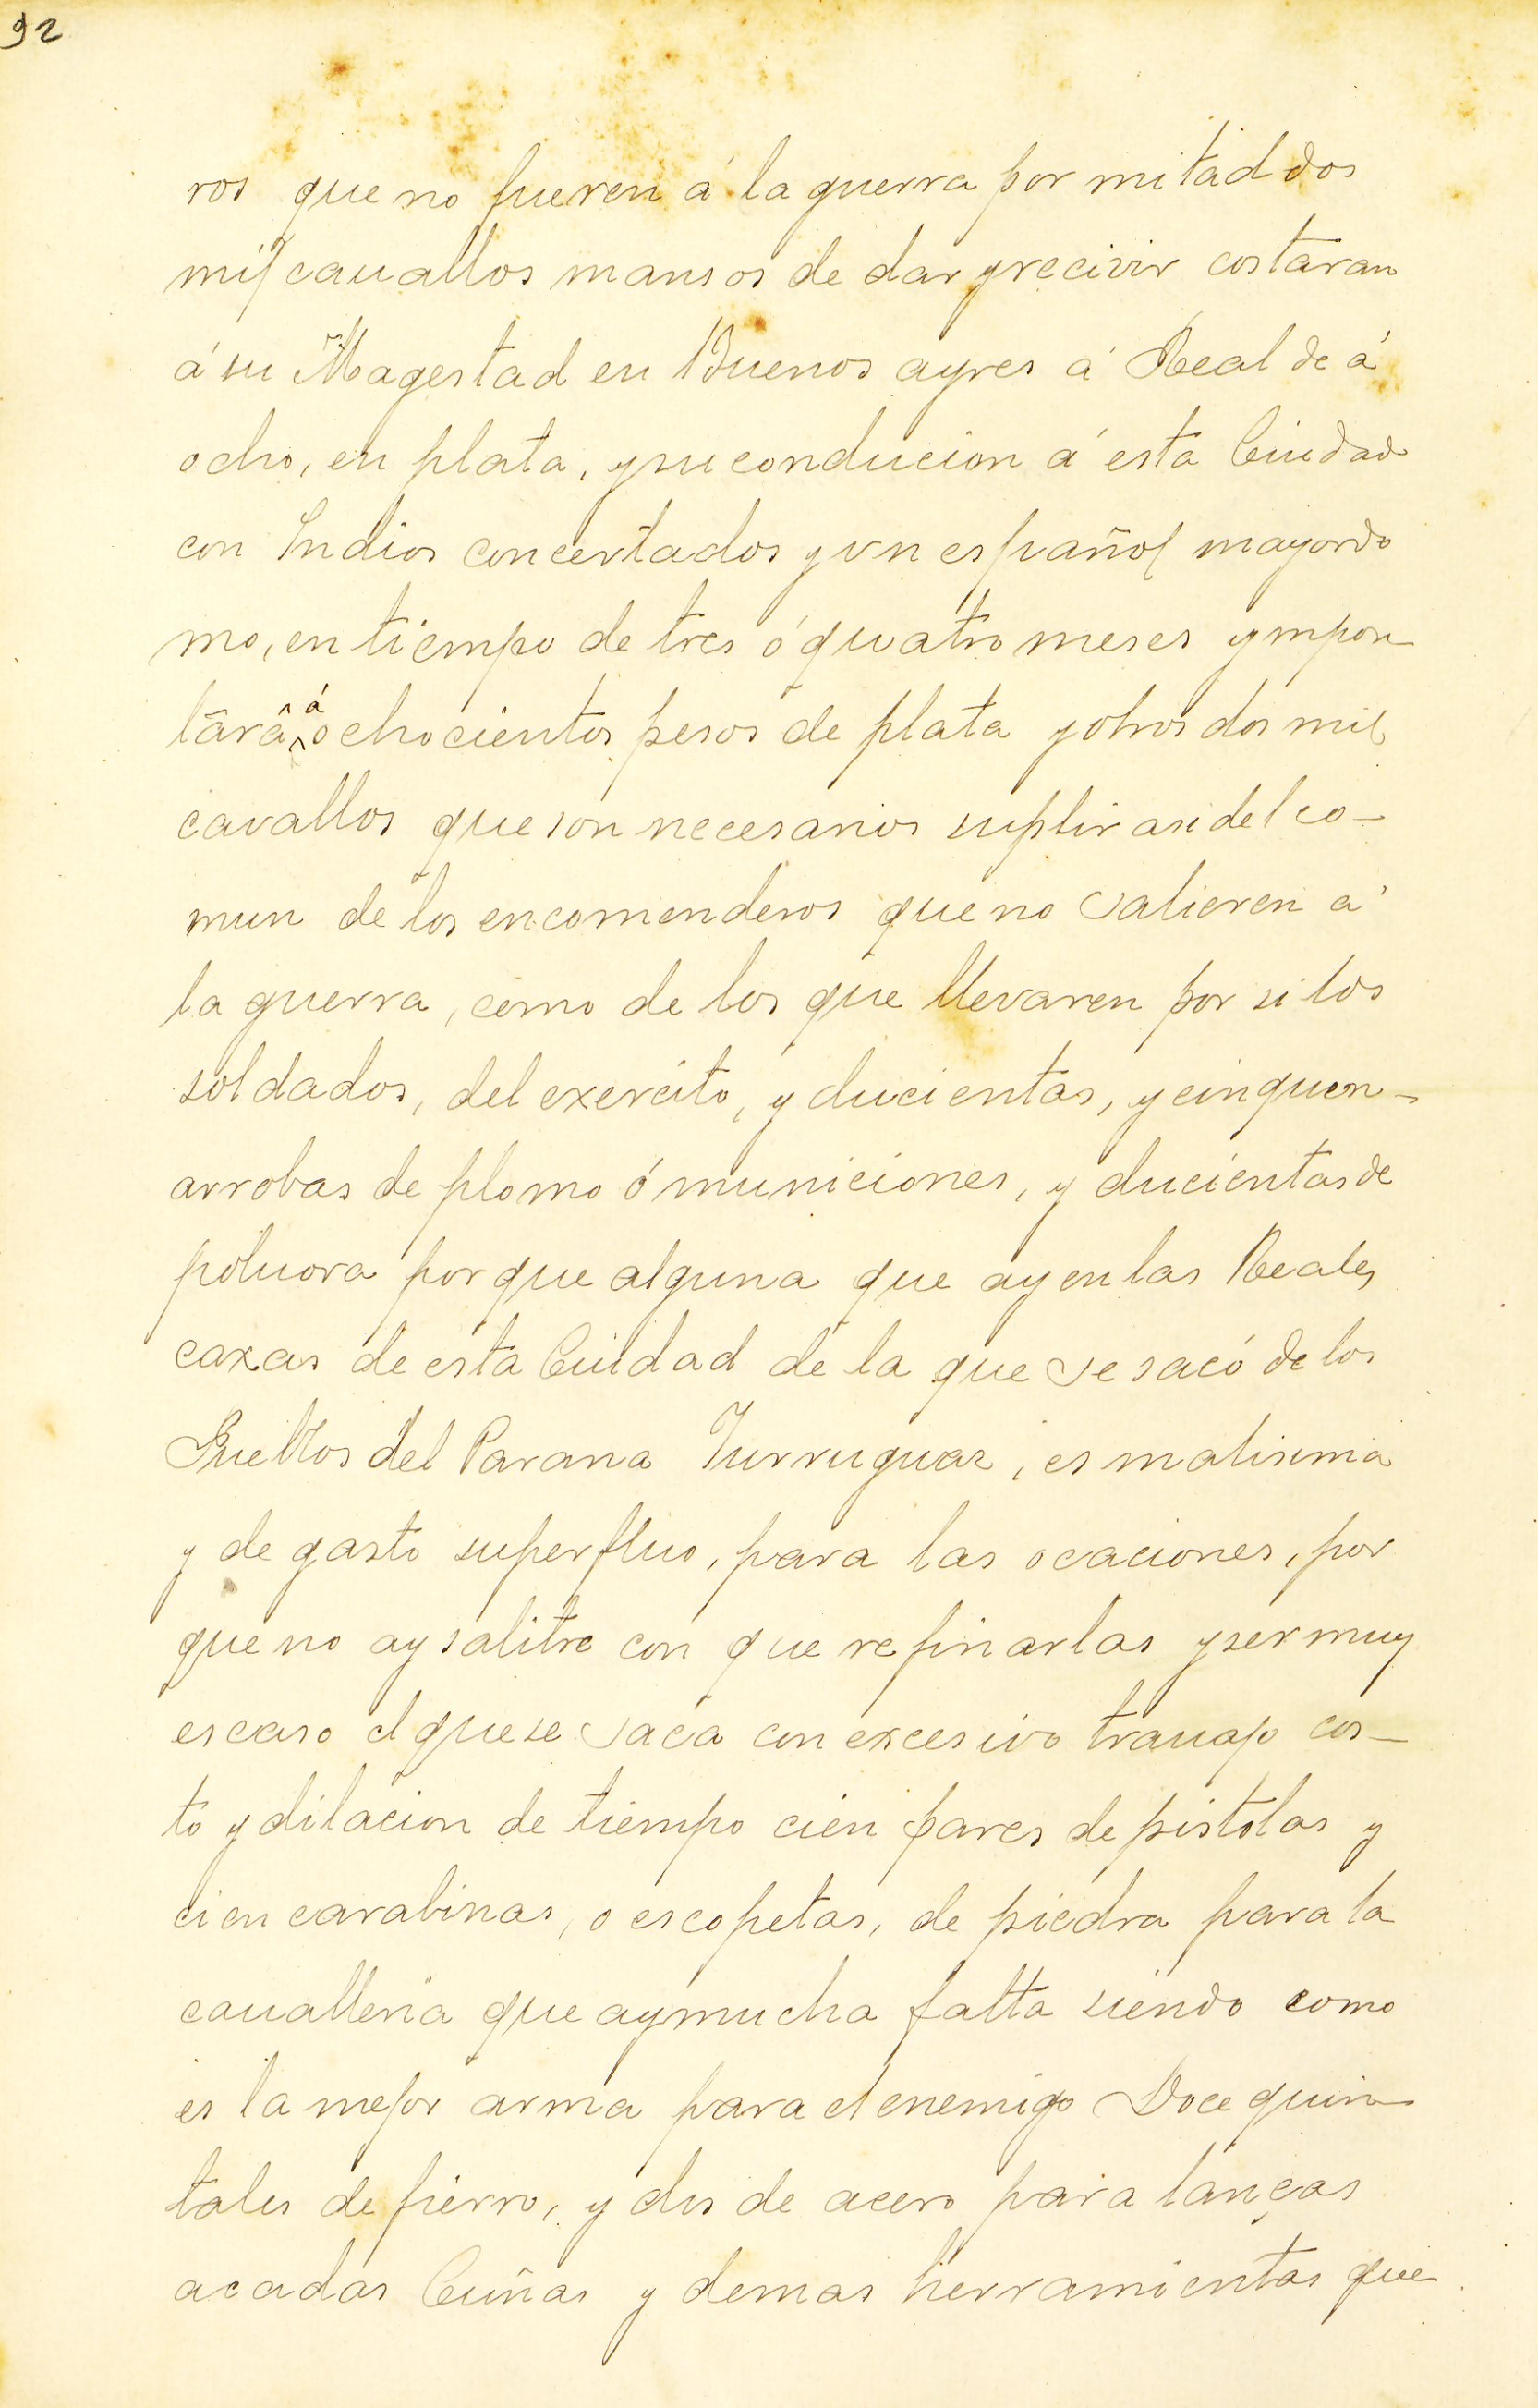 92
ros que no fueren á la guerra por mitad dos
mil cauallos mansos de dar y recivir costaran
á su Magestad en Buenos ayres á Real de á
ocho, en plata, y su conducion á esta Ciudad
con Indios concertados y vn español mayordo
mo, en tiempo de tres ó quatro meses ympor
tará á ochocientos pesos de plata y otros dos mil
cavallos que son necesarios suplir asi del co-
mun de los encomenderos que no salieren á
la guerra, como de los que llevaren por si los
soldados, del exercito, y ducientas, y cinquen-
arrobas de plomo ó municiones, y ducientas de
poluora porque alguna que ay en las Reales
caxas de esta Ciudad de la que se sacó de los
Pueblos del Parana Yurruguai, es malisima
y de gasto superfluo, para las ocaciones, por
que no ay salitre con que refinarlas y ser muy
escaso el que se saca con excesivo trauajo cos-
to y dilacion de tiempo cien pares de pistolas y
cien carabinas, o escopetas, de piedra para la
caualleria que ay mucha falta siendo como
es la mejor arma para el enemigo Doce quin
tales de fierro, y dos de acero para lanças
acadas Cuñas y demas herramientas que